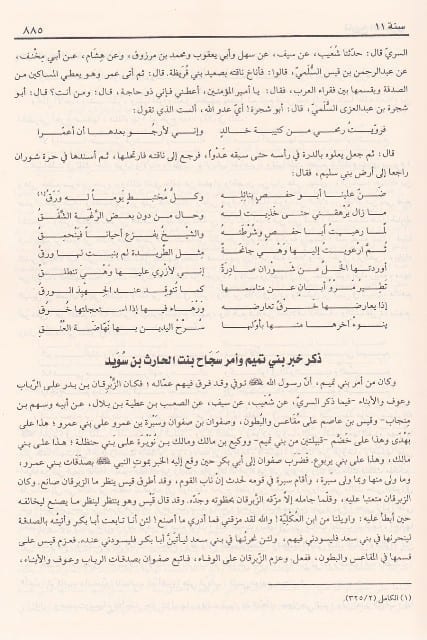 سنة ١١ ٨٨٥
السريّ قال: حدّثنا شُعَيب، عن سيف، عن سهل وأبي يعقوب ومحمد بن مرزوق، وعن هِشام، عن أبي مِخْنف،
عن عبدالرحمن بن قيس السُّلميّ، قالوا: فأناخ ناقته بصعيد بني قُريظة. قال: ثم أتى عمر وهو يعطي المساكين من
الصدقة ويقسمها بين فقراء العرب، فقال: يا أمير المؤمنين، أعطني فإني ذو حاجة، قال: ومن أنت؟ قال: أبو
شجرة بن عبدالعزى السُّلَميّ، قال: أبو شجرة! أي عدو الله، ألست الذي تقول:
فروّيت رمحي من كتيبة خالدٍ وإنـي لأرجـو بعدهـا أن أعمَّـرا
قال: ثم جعل يعلوه بالدرة في رأسه حتى سبقه عَدْواً، فرجع إلى ناقته فارتحلها، ثم أسندها في حرّة شوران
راجعاً إلى أرض بني سليم، فقال:
ضَـنَّ علينا أبو حفـصٍ بنائلِـه وكلُّ مُختبطٍ يوماً لـه وَرَقُ(١)
ما زال يُرهقني حتى خَذِيت له وحال من دون بعض الرَّغْبَة الشَّفَقُ
لمّا رهبتُ أبا حفصٍ وشُرْطَتَه والشيخُ يفزع أحياناً فيَنْحمِقُ
ثُـمَّ ارعويت إليها وَهْيَ جانحةٌ مثلَ الطَّريدة لم ينبت لها ورقُ
أوردتها الخلَّ من شَوْران صادِرَةً إنّي لأزري عليها وَهْيَ تنطلقُ
تطير مَرْوُ أبانٍ عن مناسمها كما تُنُوقِد عند الجِهْبِذ الوَرِقُ
إذا يعارضها خَرْقٌ تعارضه ورهاء فيها إذا استعجلتها خُرُقُ
ينـوءُ آخرهـا منها بأوّلهـا سُرُح اليدين بها نَهّاضةُ العُنُقِ
ذكر خبر بني تميم وأمر سَجَاح بنت الحارث بن سُوَيد
وكان من أمر بني تميم، أنّ رسول الله ﷺ توفي وقد فرق فيهم عماله؛ فكان الزِّبرقان بن بدر على الرِّباب
وعوف والأبناء -فيما ذكر السريّ، عن شُعَيب، عن سيف، عن الصعب بن عطية بن بلال، عن أبيه وسهم بن
مِنجاب- وقيس بن عاصم على مُقاعس والبُطون، وصفوان بن صفوان وسَبْرة بن عمرو على بني عمرو؛ هذا على
بَهْدَى وهذا على خَضَّم -قبيلتين من بني تميم- ووكيع بن مالك ومالك بن نُوَيْرة على بني حنظلة؛ هذا على بني
مالك، وهذا على بني يربوع. فضَرَب صفوان إلى أبي بكر حين وقع إليه الخبر بموت النبي ﷺ بصَدَقات بني عمرو،
وما ولِيَ منها وبما ولى سبرة، وأقام سبرة في قومه لحدث إن ناب القوم، وقد أطرق قيس ينظر ما الزِّبرقان صانع. وكان
الزبرقان متعتباً عليه، وقلّما جامله إلاّ مزّقه الزّبرقان بحظوته وجدّه. وقد قال قَيْس وهو ينتظر لينظر ما يصنع ليخالفه
حين أبطأ عليه: واويلنا من ابن العُكْليَّة! والله لقد مزّقني فما أدري ما أصنع! لئن أنا تابعت أبا بكر وأتيتُه بالصدقة
لينحرنّها في بني سعد فليسودني فيهم، ولئن نَحرتُها في بني سعد ليأتينّ أبا بكر فليسودني عنده. فعزم قيس على
قسمها في المقاعس والبطون، ففعل. وعزم الزّبرقان على الوفاء، فاتبع صفوان بصدقات الرباب وعوف والأبناء،
(١) الكامل (٢/ ٣٢٥).